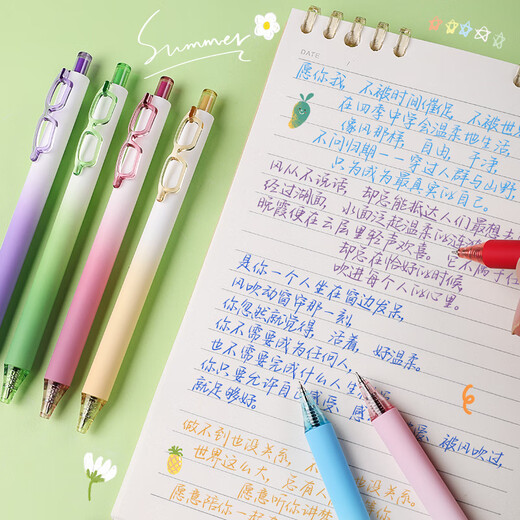 Summer
DATE
愿你我 不被时间催促 不被世
在四季中学会温柔地生活
像风那样,自由,干净
不问归期——穿过人群与山野
只为成为最真实的自己
风从不说话,却总能抵达人们最想去
经过湖面,水面泛起温柔的
晚霞便在云层里轻声欢喜。它不属于任
却总在恰好的时候,
吹进每个人的心里。
是你一个人坐在窗边发呆,
风吹动窗帘那一刻,
你忽然就觉得,活着,好温柔。
你不需要成为任何人,
也不需要完成什么人生
你只要允许自 感 被风吹过,
就足够好。
做不到也没关系,不
世界这么大,总有人 没关系。
愿意陪你一起 愿意听你讲